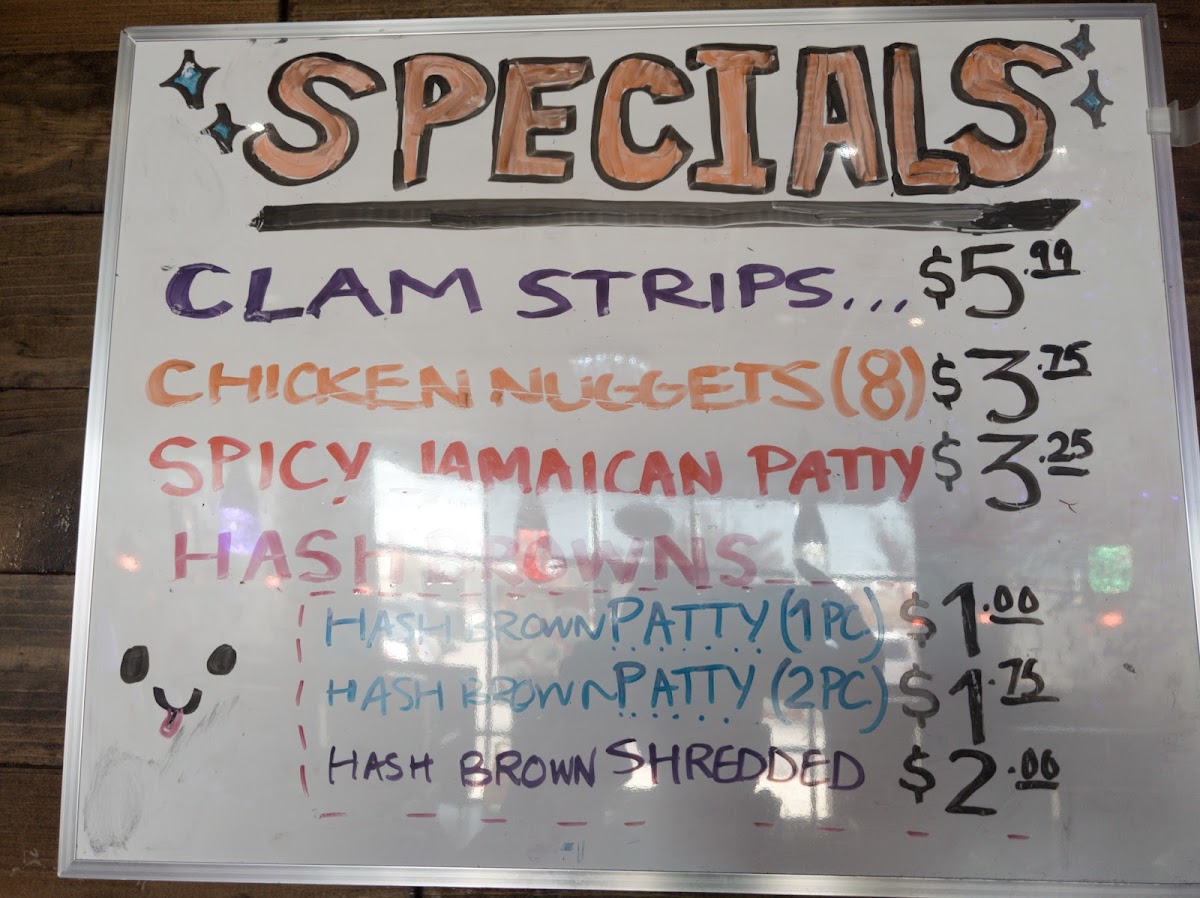 SPECIALS
CLAM STRIPS... $5.99
CHICKEN NUGGETS (8) $3.75
SPICY JAMAICAN PATTY $3.25
HASH BROWNS
HASH BROWN PATTY (1PC) $1.00
HASH BROWN PATTY (2PC) $1.75
HASH BROWN SHREDDED $2.00